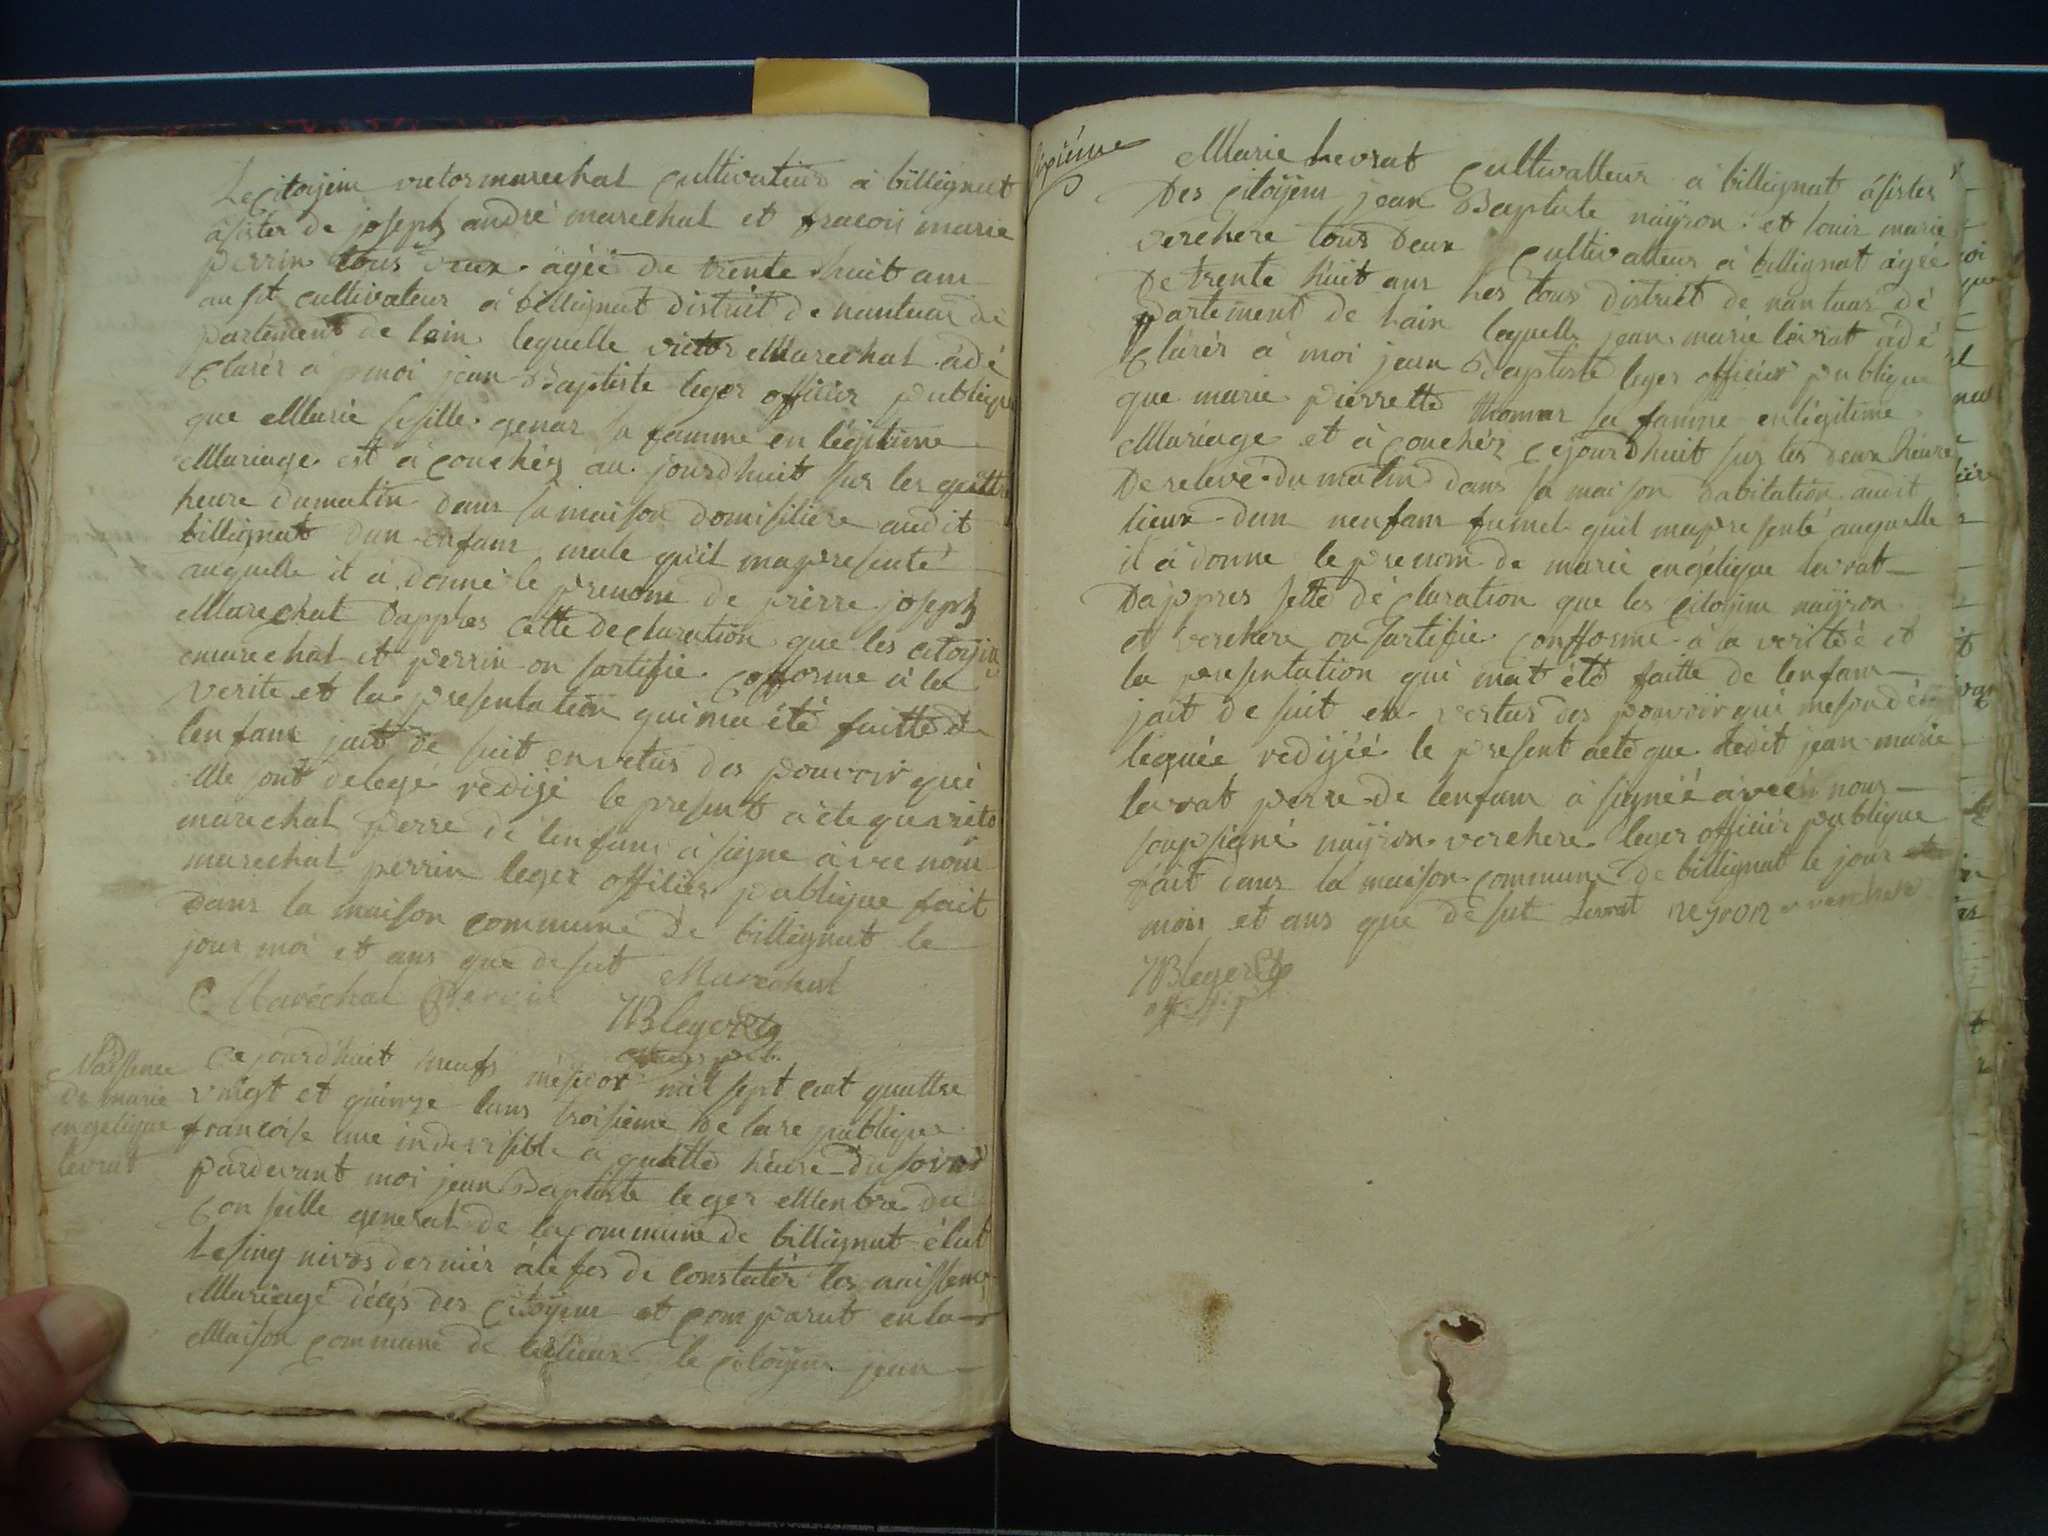 Le Citoyein victor marechal Cultivateur a billiignat
asister de joseph andré marechal et fracois marie
perrin tous deux ageé de trente huit ans
au sit cultivateur a billiignat district de nantua dé
partement de lain lequelle victor Marechal a dé
Clarér a moi jean Baptiste leger officier publique
que Marie sesille genar sa famme en légitime
Mariage est a couchér au jourdhuit sur les quattre
heure du matin dans sa maison domisiliere audit
billiignat dun enfans male quil ma presenté
auquelle il a donné le prenom de pierre joseph
Marechal Dapples cette declaration que les citoyin
marechal et perrin on sartifie cofforme a la
verite et la presentation qui ma été faitte de
lenfans jait de suit en vertus des pouvoir qui
Me sont delegé redigé le present acte que victo
marechal perre de lenfans a signe avec nous
marechal perrin leger offilier publique fait
dans la maison commune de billiignat le
jour moi et ans que de sut Marechal
Maréchal Perrin
JB leger
Naissence
de marie
engelique
levrat
Ce jourdhuit neufs mésidor mil sept cent quattre
vingt et quinze lans troisieme de la re publique
francoise une indevisible a quatte heure du soir
pardevant moi jean Baptiste leger Menbre du
Conseille general de la commune de billiignat élut
le sinq nivos derniér a le fes de constatér les naissence
Mariage décés des Citoyens et comparut en la
Maison commune de le citoyen jean
sixiéme
Marie Levrat Cultivatteur a billignat asister
Des Citoyens jean Baptiste nayron et louis marie
verchere tous deux cultivatteur a billignat ageé
De trente huit ans les tous district de nantuas dé
partement de lain lequelle jean marie levrat a dé
Clarér a moi jean Baptiste leger officiér publique
que marie pierrette thomas sa famme en légitime
Mariage et a couchér Cejourdhuit sur les deux heure
De relevé du matin dans sa maison dabitation audit
lieux dun nenfans fumel quil ma presenté auquelle
il a donne le prenom de marie engélique levrat
Dappres sette déclaration que les Citoyins nayron
et verchere on sartifie confforme a la veriteé et
la presentation qui mat été faitte de lenfans
jait de suit en vertus des pouvoir qui me son dé
leguée redigéé le present acte que ledit jean marie
levrat perre de lenfans a signéé avec nous
soupsigné nayron verchere leger officiér publique
fait dans la maison commune de billignat le jour
mois et ans que de sut Levrat neyron verchere
JB leger
off. p.